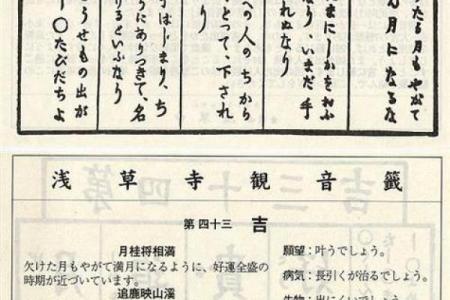 うたる月もやがて
ん月になるな
たまにしかをおふ
なり、いまだ手
れぬなり
への人のちから
とつて、下され
り
子はじまり、ち
うにありつきて、名
りるといふなり
うせもの出が
〇たびだちよ
浅草寺観音籤
第四十三 吉
月桂将相満
欠けた月もやがて満月になるように、好運全盛の
時期が近づいています。
追鹿映山渓
願望：叶うでしょう。
病気：長引くが治るでしょう。
失物：出にくいでしょう